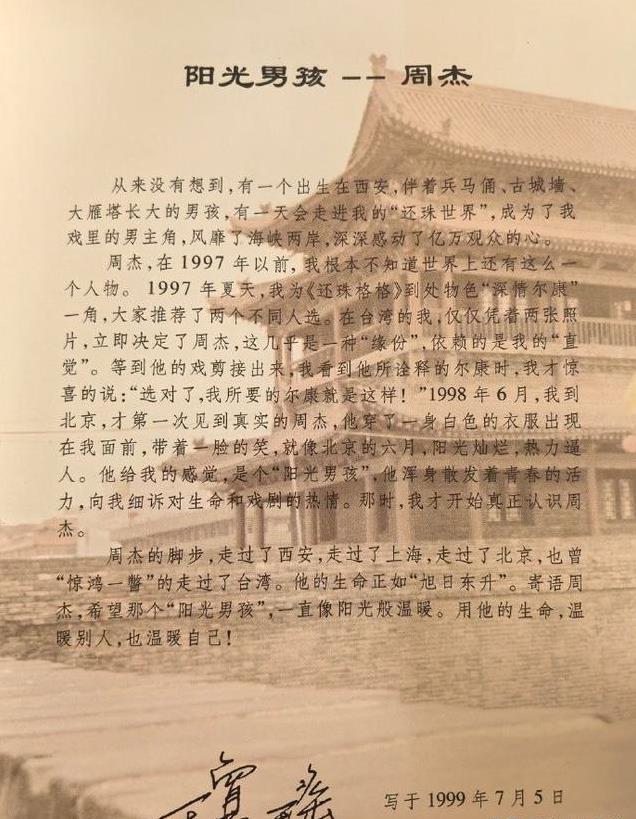 阳光男孩 -- 周杰
从来没有想到,有一个出生在西安,伴着兵马俑、古城墙、
大雁塔长大的男孩,有一天会走进我的“还珠世界”,成为了我
戏里的男主角,风靡了海峡两岸,深深感动了亿万观众的心。
周杰,在1997年以前,我根本不知道世界上还有这么一
个人物。1997年夏天,我为《还珠格格》到处物色“深情尔康”
一角,大家推荐了两个不同人选。在台湾的我,仅仅凭着两张照
片,立即决定了周杰,这几乎是一种“缘份”,依赖的是我的“直
觉”。等到他的戏剪接出来,我看到他所诠释的尔康时,我才惊
喜的说:“选对了,我所要的尔康就是这样!”1998年6月,我到
北京,才第一次见到真实的周杰,他穿了一身白色的衣服出现
在我面前,带着一脸的笑,就像北京的六月,阳光灿烂,热力逼
人。他给我的感觉,是个“阳光男孩”,他浑身散发着青春的活
力,向我细诉对生命和戏剧的热情。那时,我才开始真正认识周
杰。
周杰的脚步,走过了西安,走过了上海,走过了北京,也曾
“惊鸿一瞥”的走过了台湾。他的生命正如“旭日东升”。寄语周
杰,希望那个“阳光男孩”,一直像阳光般温暖。用他的生命,温
暖别人,也温暖自己!
琼瑶
写于1999年7月5日